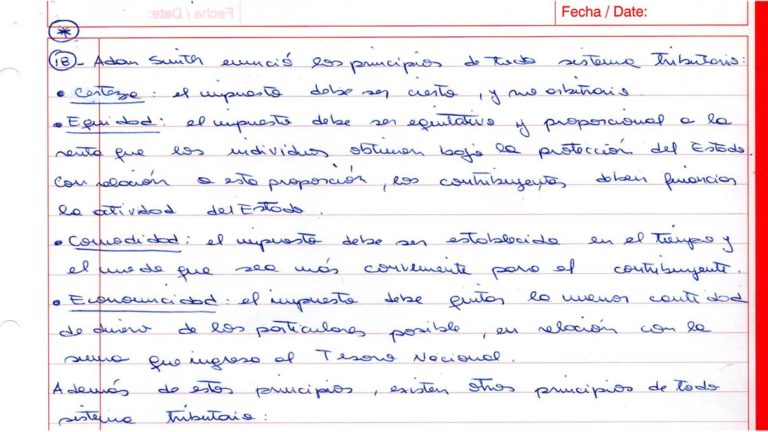 Fecha / Date:
Fecha / Date:
*
18 - Adam Smith enunció los principios de todo sistema tributario:
• Certeza: el impuesto debe ser cierto, y no arbitrario.
• Equidad: el impuesto debe ser equitativo y proporcional a la
renta que los individuos obtienen bajo la protección del Estado.
Con relación a esta proporción, los contribuyentes deben financiar
la actividad del Estado.
• Comodidad: el impuesto debe ser establecido en el tiempo y
el modo que sea más conveniente para el contribuyente.
• Economicidad: el impuesto debe quitar la menor cantidad
de dinero de los particulares posible, en relación con la
suma que ingresa al Tesoro Nacional.
Además de estos principios, existen otros principios de todo
sistema tributario: